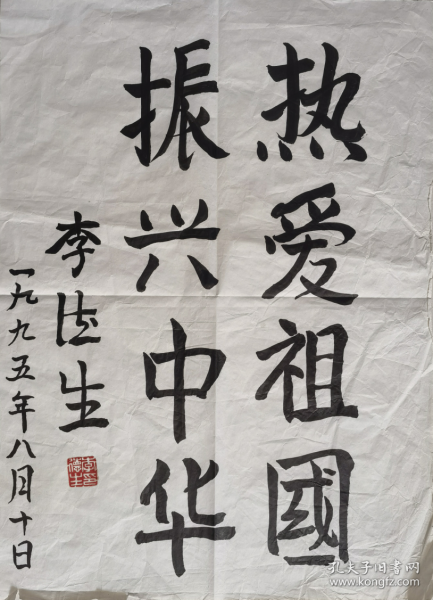 热爱祖國
振兴中华
李德生
一九九五年八月十日
李德生印
孔夫子旧书网
www.kongfz.com